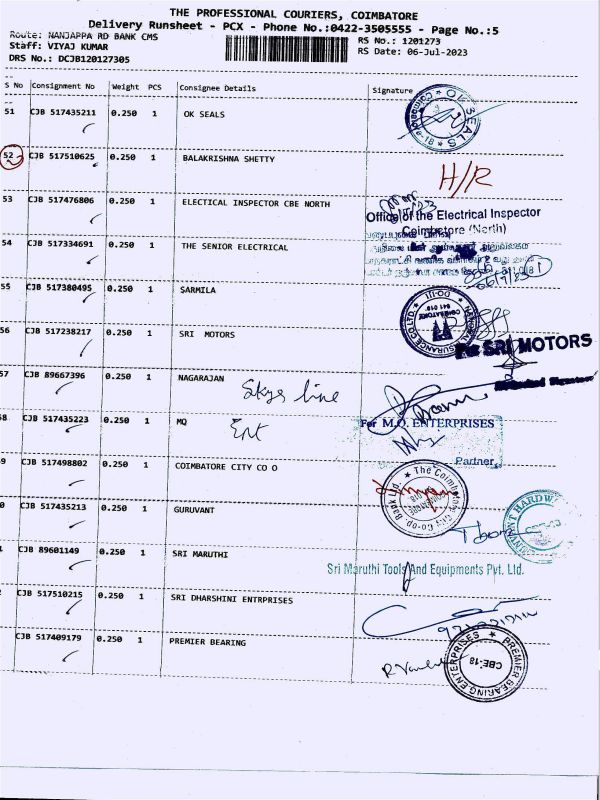 THE PROFESSIONAL COURIERS, COIMBATORE
Delivery Runsheet - PCX - Phone No.:0422-3505555 - Page No.:5
Route: NANJAPPA RD BANK CMS
RS No.: 1201273
Staff: VIYAJ KUMAR
RS Date: 06-Jul-2023
DRS No.: DCJB120127305
S No Consignment No Weight PCS Consignee Details Signature
51 CJB 517435211 0.250 1 OK SEALS
52 CJB 517510625 0.250 1 BALAKRISHNA SHETTY H/R
53 CJB 517476806 0.250 1 ELECTICAL INSPECTOR CBE NORTH
Office of the Electrical Inspector
Coimbatore (North)
54 CJB 517334691 0.250 1 THE SENIOR ELECTRICAL
55 CJB 517380495 0.250 1 SARMILA
56 CJB 517238217 0.250 1 SRI MOTORS
For SRI MOTORS
57 CJB 89667396 0.250 1 NAGARAJAN Skys line
8 CJB 517435223 0.250 1 MQ Ent
For M.Q. ENTERPRISES
Partner
9 CJB 517498802 0.250 1 COIMBATORE CITY CO O
The Coimbatore City Co-op. Bank Ltd.
0 CJB 517435213 0.250 1 GURUVANT
1 CJB 89601149 0.250 1 SRI MARUTHI
Sri Maruthi Tools And Equipments Pvt. Ltd.
2 CJB 517510215 0.250 1 SRI DHARSHINI ENTRPRISES
CJB 517409179 0.250 1 PREMIER BEARING
PREMIER BEARING ENTERPRISES
CBE-18